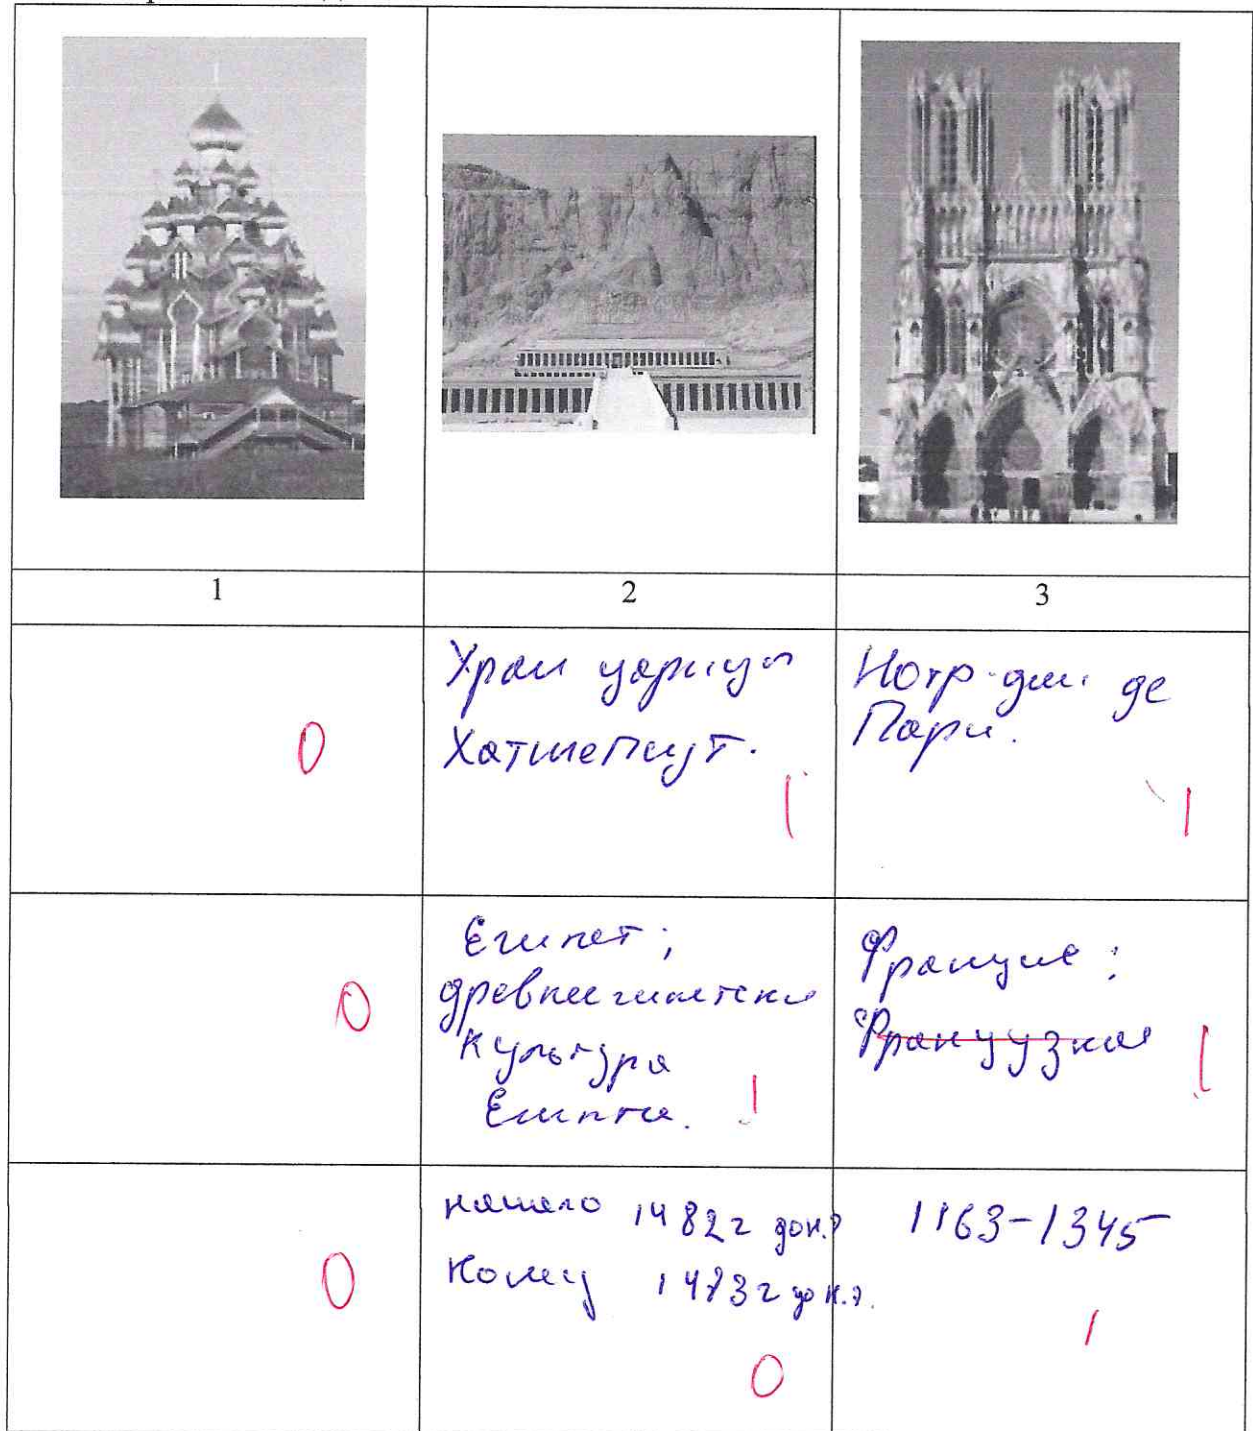 1
2
3
0
Храм царицы
Хатшепсут.
1
Нотр-дам де
Пари.
1
0
Египет;
древнеегипетская
культура
Египта.
1
Франция;
Французкая
1
0
начало 1482 г до н.э
конец 1473 г до н.э.
0
1163-1345
1